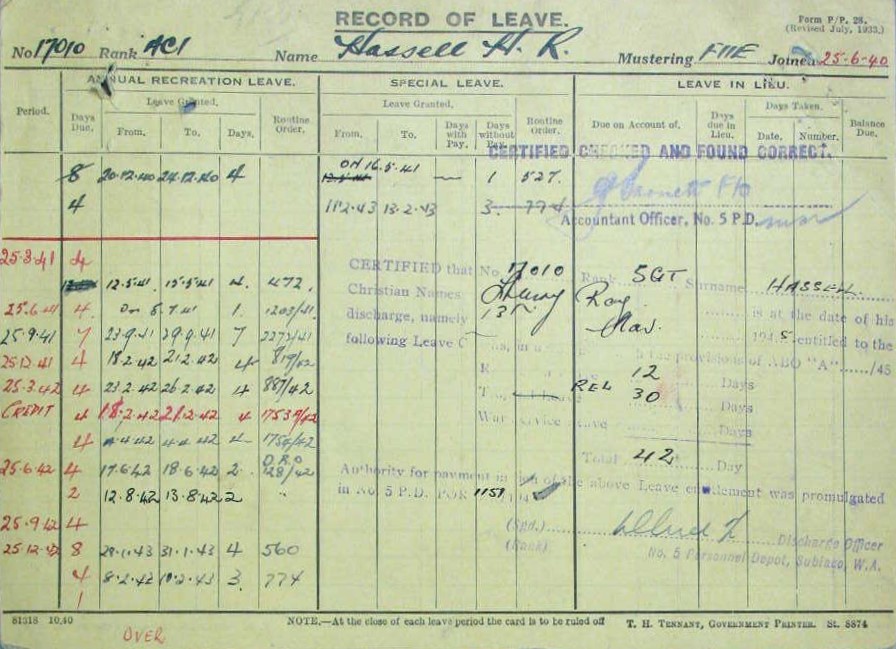 RECORD OF LEAVE.
Form P/P. 28.
(Revised July, 1933.)
No 17010 Rank AC1 Name Hassell H. R. Mustering FIIE Joined 25-6-40
ANNUAL RECREATION LEAVE. SPECIAL LEAVE. LEAVE IN LIEU.
Period. Days Due. Leave Granted. From. To. Days. Routine Order.
Leave Granted. From. To. Days with Pay. Days without Pay. Routine Order.
Due on Account of. Days due in Lieu. Days Taken. Date. Number. Balance Due.
CERTIFIED CHECKED AND FOUND CORRECT.
8 20.12.40 24.12.40 4 ON 16.5.41 — 1 527.
4 11.2.43 13.2.43 3. 774
Accountant Officer, No. 5 P.D.
25.3.41 4
12.5.41. 15.5.41 4. 472.
25.6.41 4. On 5.7.41 1. 1203/41.
25.9.41 7 23.9.41 29.9.41 7 2272/41
25.12.41 4 18.2.42 21.2.42 4 819/42
25.3.42 4 23.2.42 26.2.42 4 887/42
CREDIT 4 18.2.42 21.2.42 4 1753/42
4 4.4.42 4 1754/42
D.R.O
25.6.42 4 17.6.42 18.6.42 2. 128/42
2 12.8.42 13.8.42 2 "
25.9.42 4
25.12.42 8 28.1.43 31.1.43 4 560
4 8.2.43 10.2.43 3. 774
1
CERTIFIED that No. 17010 Rank SGT Surname HASSELL
Christian Names Ray is at the date of his
discharge, namely 13th Nov. 1945 entitled to the
following Leave the provisions of ABO "A" /45
12 Days
REL 30 Days
War Service Leave Days
Total 42 Day
Authority for payment in lieu of the above Leave entitlement was promulgated
in No 5 P.D. POR 1151 194
(Sgd.) Discharge Officer
(Rank) No. 5 Personnel Depot, Subiaco, W.A.
81318 10.40 NOTE.—At the close of each leave period the card is to be ruled off T. H. TENNANT, GOVERNMENT PRINTER. St. 8874
OVER